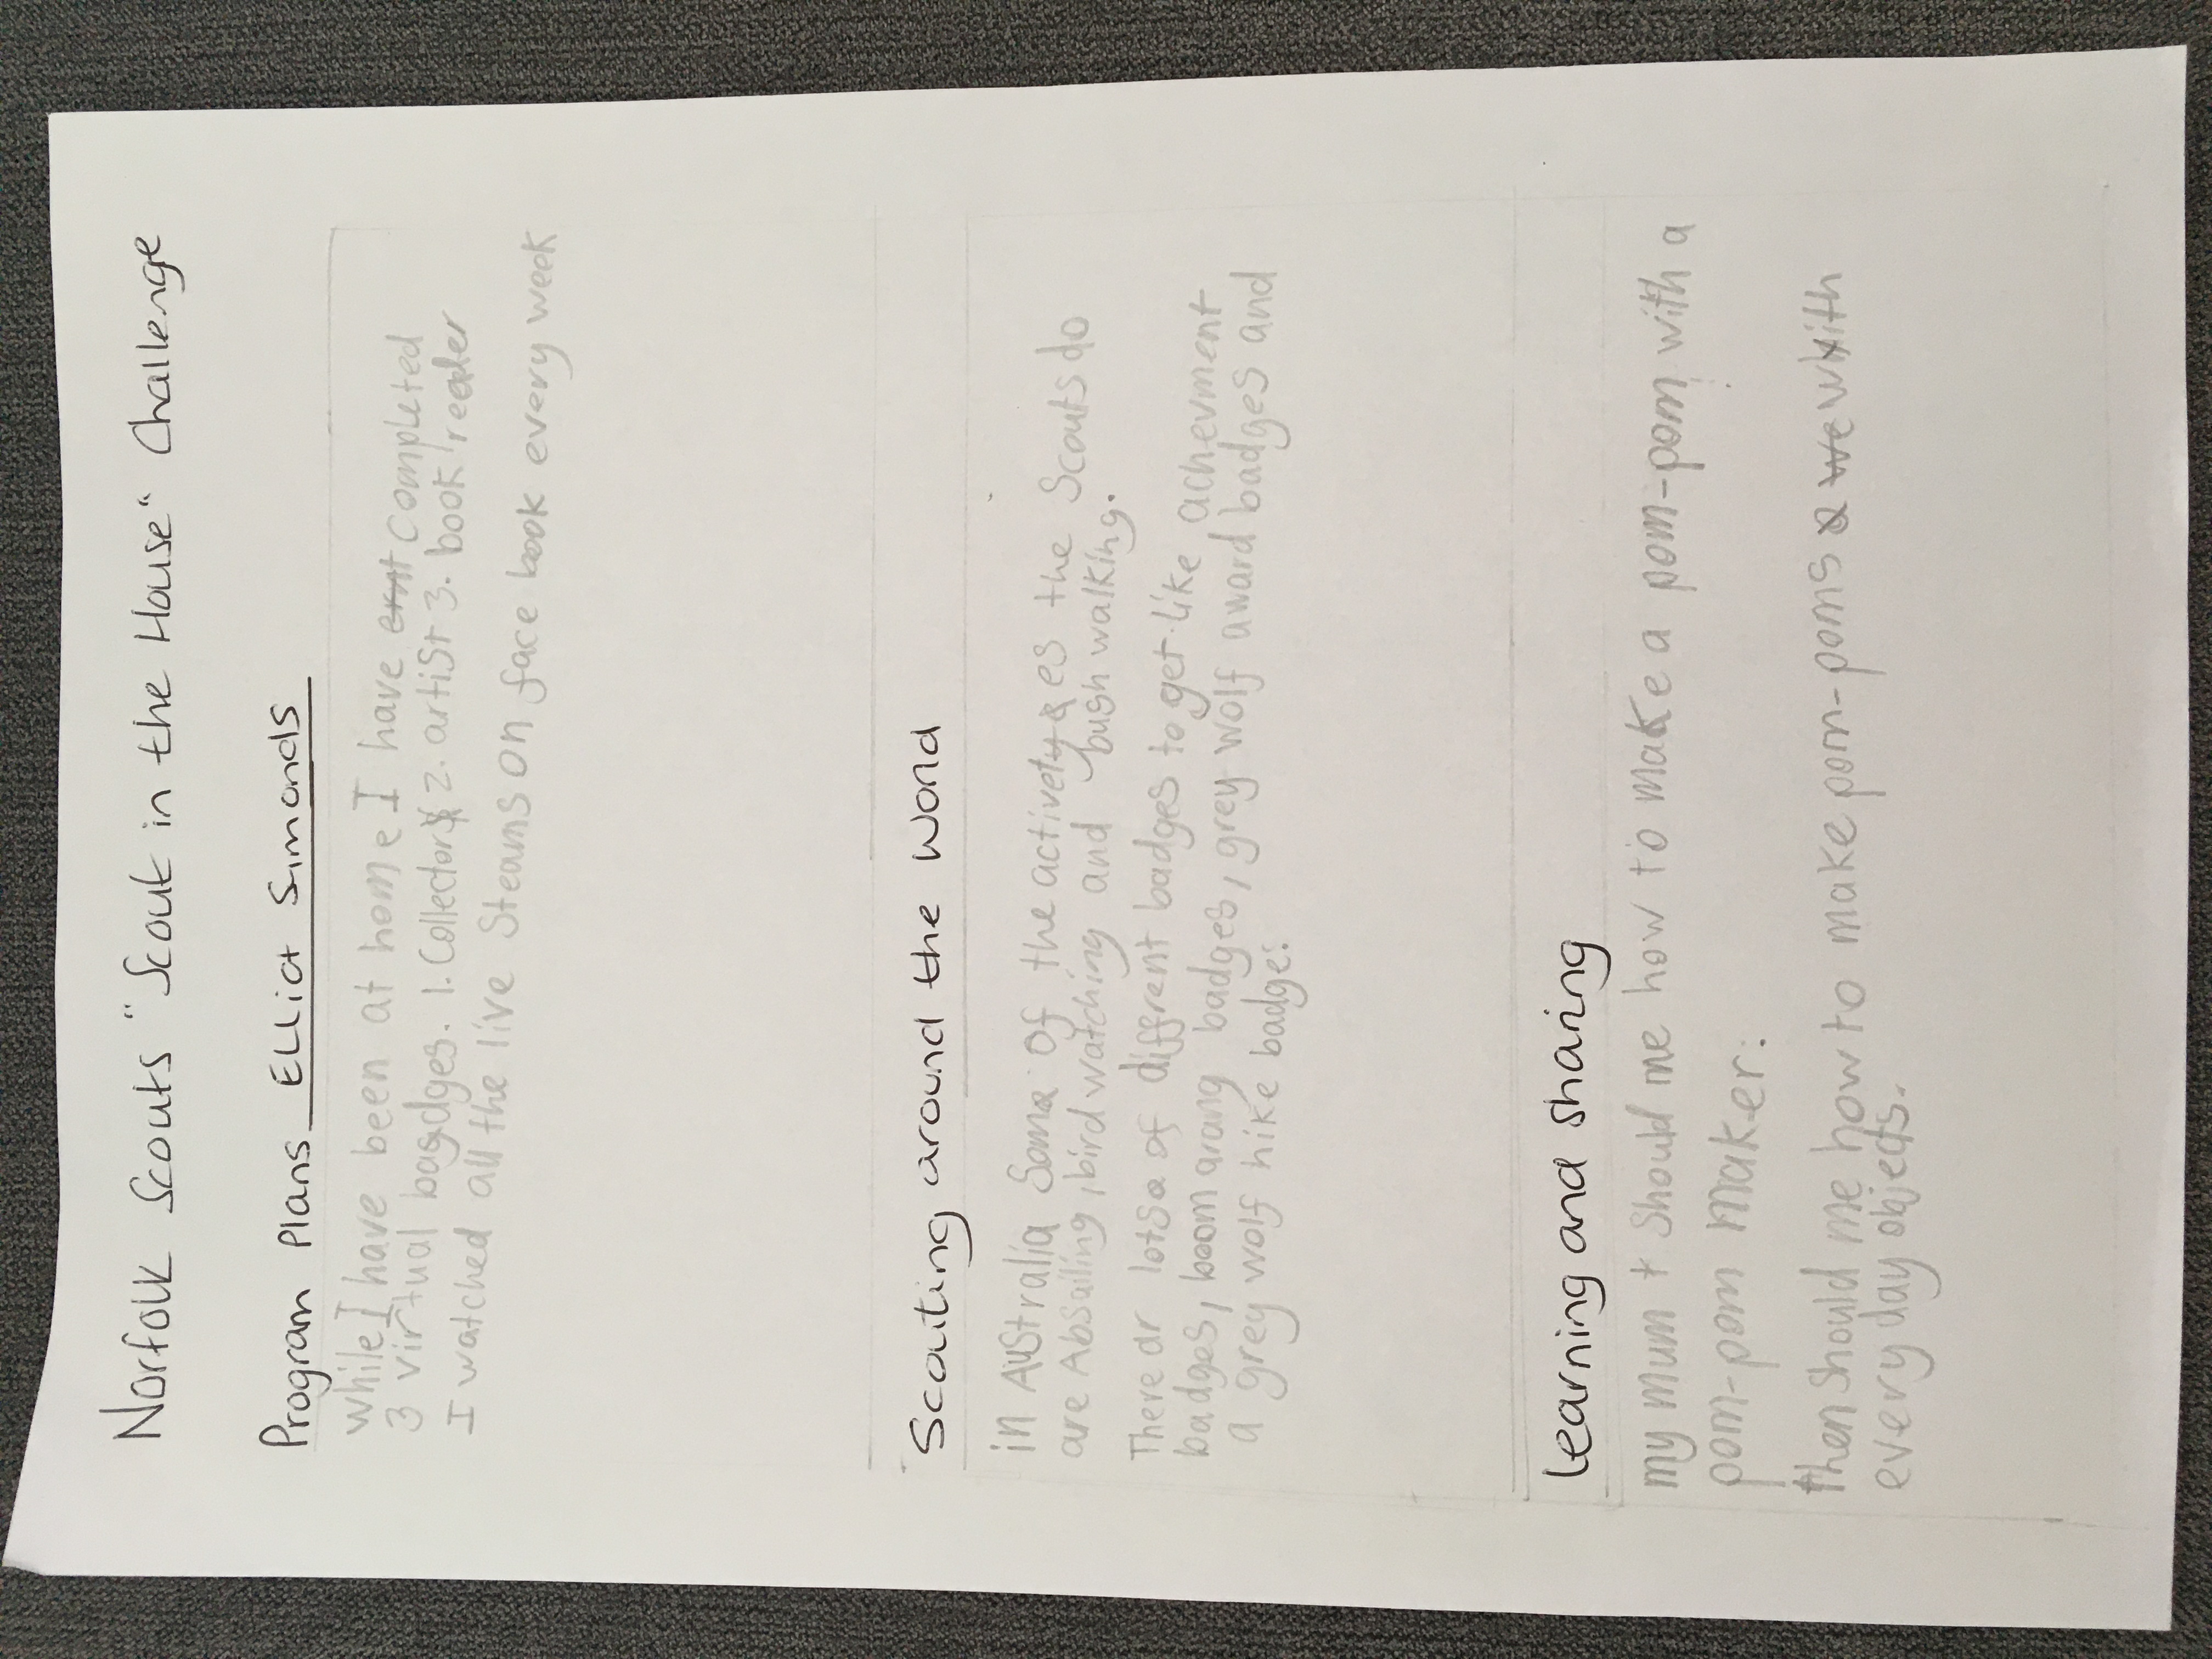 Norfolk Scouts "Scout in the House" Challenge
Program Plans Elliot Simonds
while I have been at home I have completed
3 virtual bagdges. 1. Collector 2. artist 3. book reader
I watched all the live Steams on face book every week
Scouting around the World
in Australia Some Of the activetyes the Scouts do
are Absailing, bird watching and bush walking.
There ar lotsa of diffrent badges to get like achevment
badges, boomarang badges, grey wolf award badges and
a grey wolf hike badge.
Learning and sharing
my mum + Should me how to make a pom-pom with a
pom-pom Maker.
then should me how to make pom-poms with
every day objects.